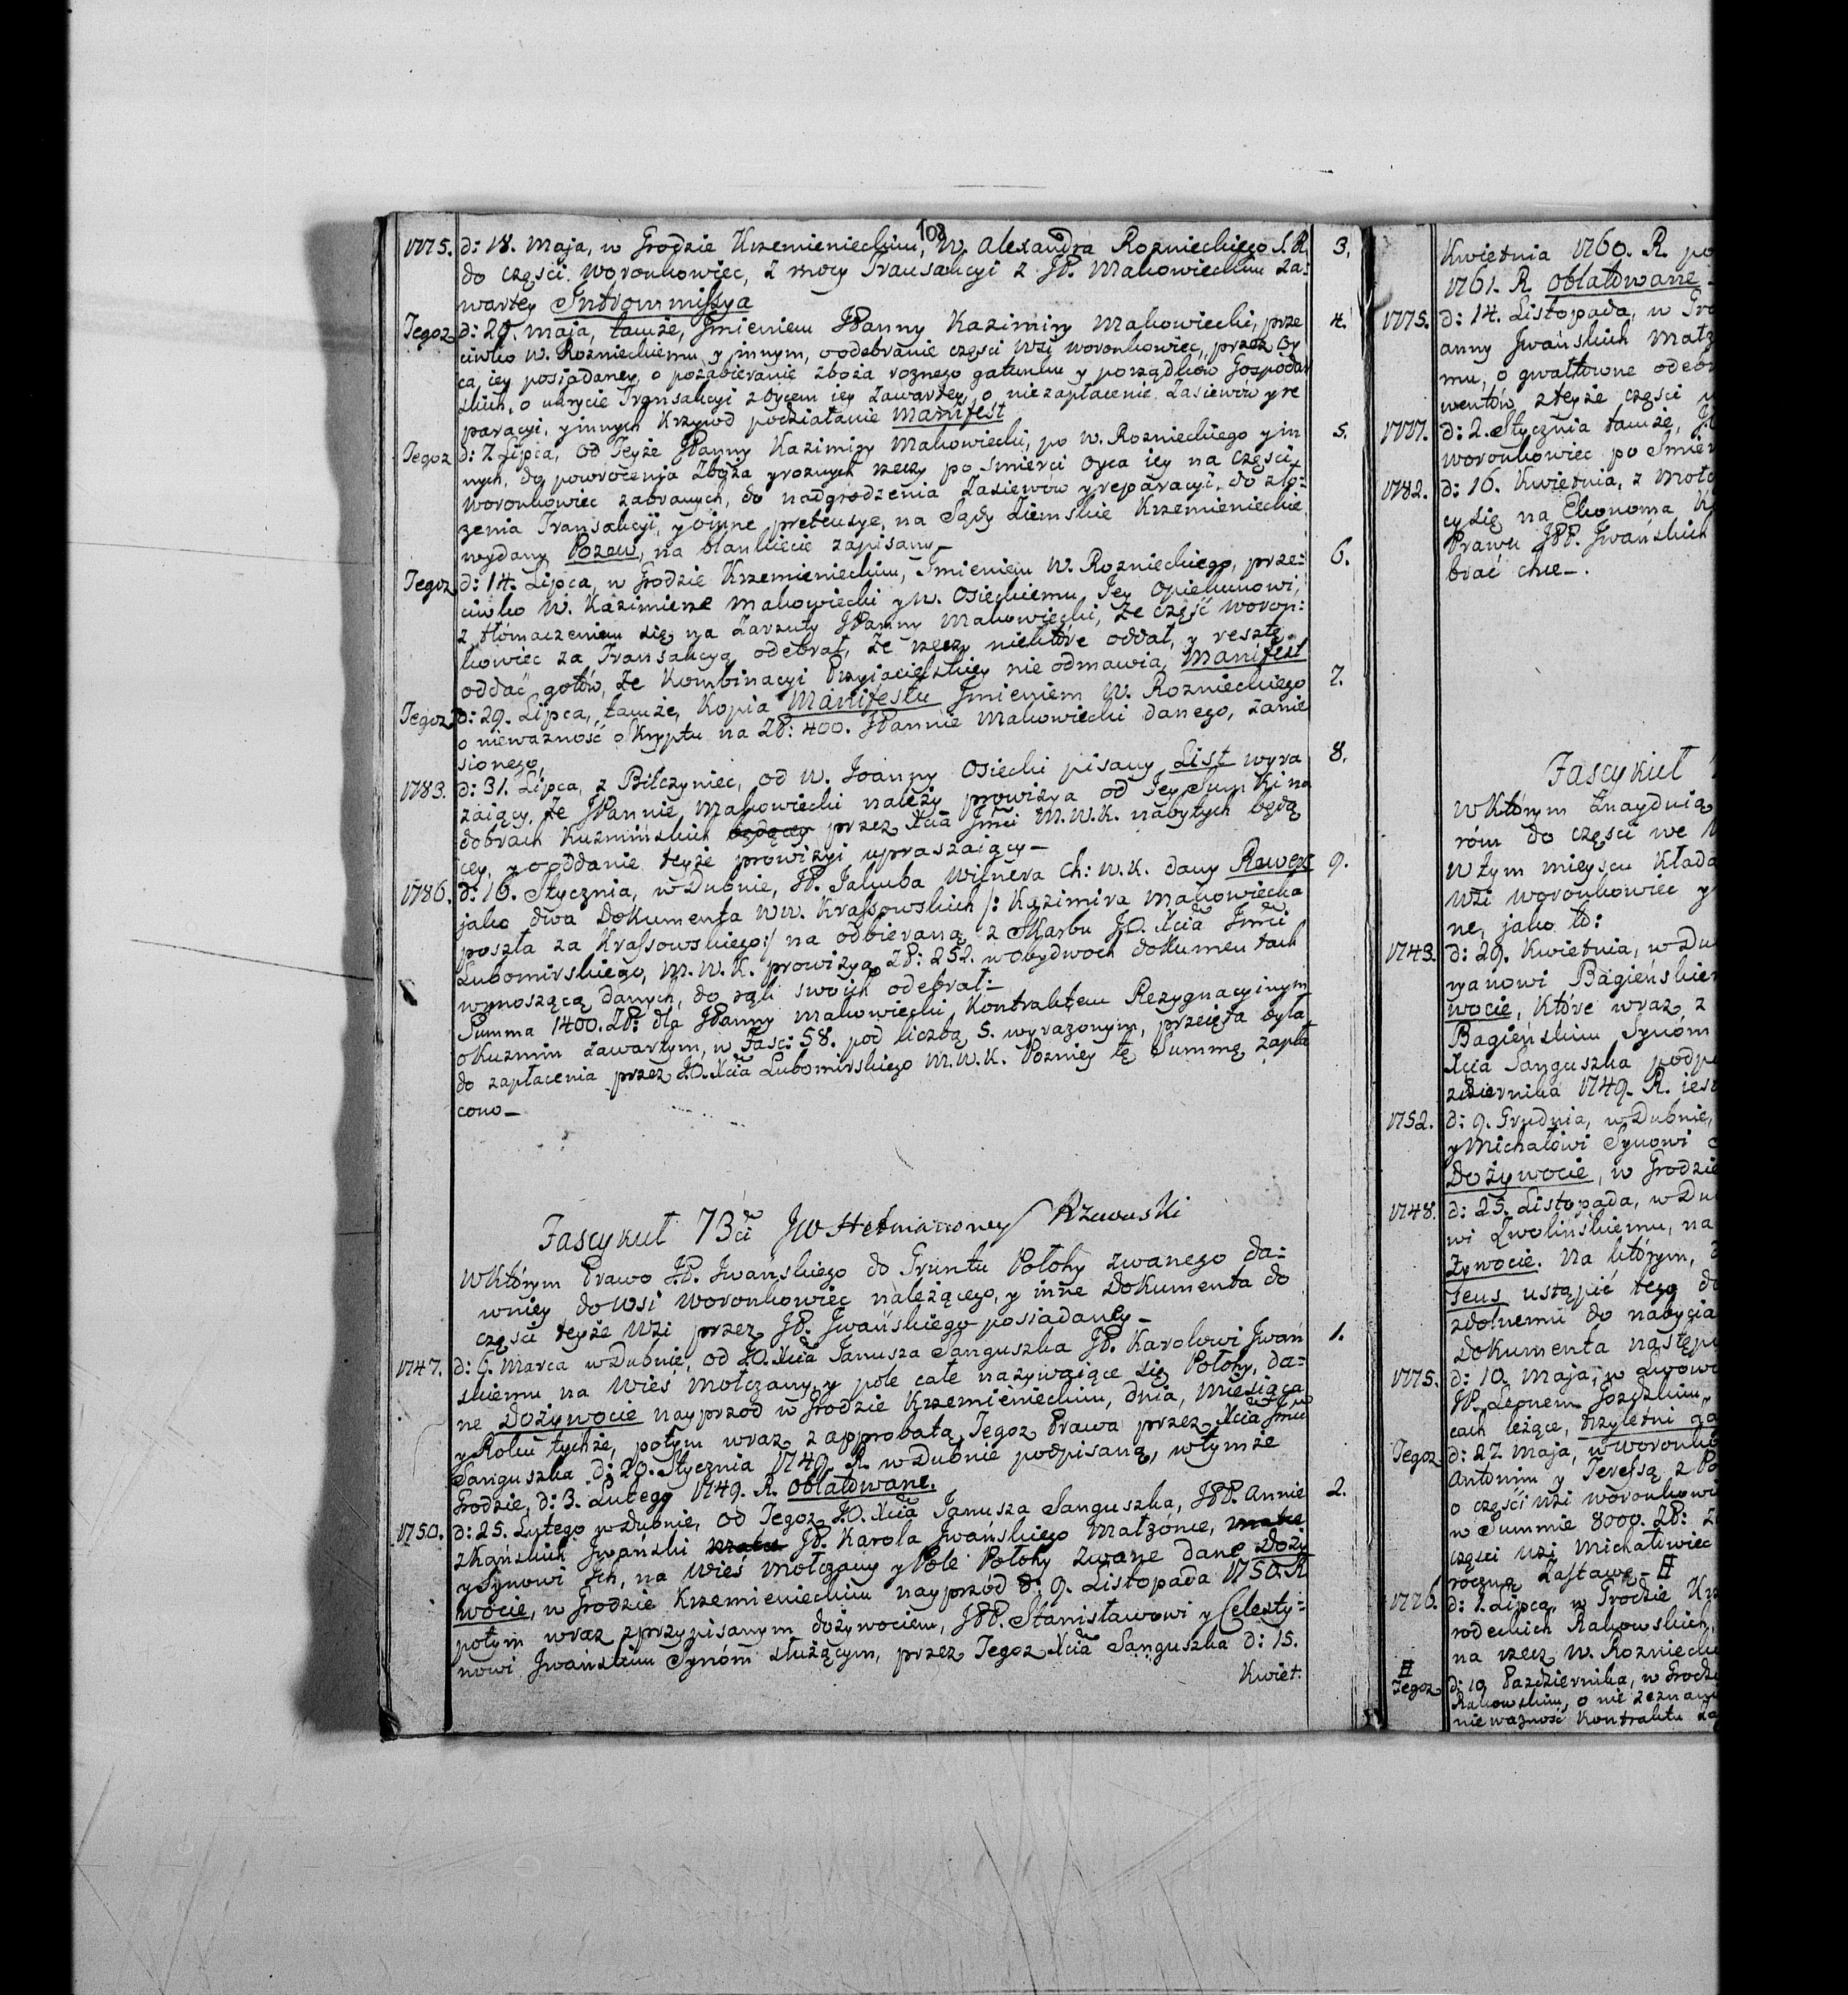 108
1775. d: 18. Maja, w Grodzie Krzemienieckim, W. Alexandra Roznieckiego S. R. 3.
do części Woronkowiec, z mocy Transakcyi z JP. Makowieckim za:
wartey Intromissya
Tegoz d: 29. Maja, tamże, Jmieniem JPanny Kazimiry Makowiecki, prze 4.
ciwko W. Roznieckiemu y innym, o odebranie części Wsi Woronkowiec, przez Oy
ca iey posiadaney, o pozabieranie zboża roznego gatunku y porządków Gospodar
skich, o ukrycie Transakcyi z Oycem iey zawartey, o niezapłacenie Zasiewów y re
paracyi, y innych Krzywd podziałanie Manifest
Tegoz d: 7 Lipca, od Teyże JPanny Kazimiry Makowiecki, po W. Roznieckiego y in 5.
nych, do powrocenia Zboża y roznych rzeczy po Smierci Oyca iey na części
Woronkowiec zabranych, do nadgrodzenia Zasiewów y reparacyi, do zło:
żenia Transakcyi, y o inne pretensye, na Sądy Ziemskie Krzemienieckie
wydany Pozew, na blankiecie zapisany_
Tegoz d: 14. Lipca, w Grodzie Krzemienieckim, Jmieniem W. Roznieckiego, prze: 6.
ciwko W. Kazimirze Makowiecki y W. Osieckiemu Jey Opiekunowi,
z tłomaczeniem się na Zarzuty JPanny Makowiecki, że część Woron:
kowiec za Transakcyą odebrał, że rzeczy niektóre oddał, y resztę
oddać gotów, że Kombinacyi Przyiacielskiey nie odmawia, Manifest
Tegoz d: 29. Lipca, tamże, Kopia Manifestu Jmieniem W. Roznieckiego 7.
o nieważność oSkryptu na Zł: 400. JPannie Makowiecki danego, zanie
sionego,
1783. d: 31. Lipca, z Bilczyniec, od W. Joanny Osiecki pisany List wyra 8.
żaiący, że JPannie Makowiecki należy prowizya od Jey Sumki na
dobrach Kuzmińskich będącey przez Xcia Jmci M.W.K. nabytych będą
cey, y o oddanie teyże prowizyi upraszaiący_
1786. d: 16. Stycznia, w Dubnie, JP. Jakuba Wilnera Ch: W. K. dany Rewers 9.
jako dwa Dokumenta WW. Krassowskich /: Kazimira Makowiecka
poszła za Krassowskiego:/ na odbieraną z Skarbu J.O. Xcia Jmci
Lubomirskiego, M. W. K. prowizyą Zł: 252. w obydwoch dokumentach
wynoszącą danych, do rąk swoich odebrał_
Summa 1400. Zł: dla JPanny Makowiecki Kontraktem Rezygnacyinym
o Kuzmin zawartym, w Fasc: 58. pod liczbą 5. wyrażonym, przeięta była
do zapłacenia przez J.O. Xcia Lubomirskiego M.W.K. Pozniey tę Summę zapła
cono_
Fascykuł 73ci JW Hetmanowey Rzewuski
W którym Prawo JP. Jwanskiego do Gruntu Połohy zwanego da:
wniey do Wsi Woronkowiec należącego, y inne Dokumenta do
części teyże Wsi przez JP. Jwańskiego posiadaney_
1747. d: 6. Marca w Dubnie, od J.O. Xcia Janusza Sanguszka JP. Karolowi Jwań 1.
skiemu na Wieś Mołczany, y pole całe nazywaiące się Połohy, da:
ne Dożywocie nayprzod w Grodzie Krzemienieckim, dnia, Miesiąca
y Roku tychże, potym wraz z approbatą Tegoz Prawa przez Xcia Jmci
Sanguszka d: 20. Stycznia 1749. R. w Dubnie podpisaną, w tymże
Grodzie, d: 3. Lutego 1749. R. oblatowane.
1750. d: 25. Lutego w Dubnie, od Tegoz J.O. Xcia Janusza Sanguszka, JPP. Annie 2.
z Kańskich Jwański JP. Karola Jwańskiego Małżonce,
y Synowi Jch, na Wieś Mołczany y Pole Połohy zwane dane Doży
wocie, w Grodzie Krzemienieckim nayprzód d: 9. Listopada 1750. R
potym wraz z przypisanym dożywociem, JPP. Stanisławowi y Celesty:
nowi Jwańskim Synóm służącym, przez Tegoz Xcia Sanguszka d: 15.
Kwiet.
Kwietnia 1760. R. po
1761. R. oblatowane
1775. d: 14. Listopada, w Gro
anny Jwańskich Małż
mu, o gwałtowne odebr
wentów z teyże części
1777. d: 2. Stycznia tamże,
Woronkowiec po Smier
1782. d: 16. Kwietnia, z Moł
cy się na Ekonoma
Prawu JPP. Jwańskich
brać chce_.
Fascykuł
W którym znayduią
róm do części we
W tym mieyscu kłada
Wsi Woronkowiec y
ne, jako to:
1743. d: 29. Kwietnia, w Du
yanowi Bagieńskie
wocie, które wraz z
Bagieńskim Synom
Xcia Sanguszka podp
zdziernika 1749. R. ies
1752. d: 9. Grudnia, w Dubnie,
y Michałowi Synowi
Dożywocie, w Grodzie
1748. d: 25. Listopada, w Du
wi Zwolińskiemu, na
żywocie. Na którym,
seus ustąpić tego do
zdolnemu do nabycia
Dokumenta następu
1775. d: 10. Maja, w Lwow
JP. Leonem
cach leżące, trzyletni
Tegoz d: 27. Maja, w Woronko
Antonim y Teressą z
o części wsi Woronkowi
w Summie 8000. Zł:
części wsi Michałowiec
roczną Zastawę_ #
1776. d: 1. Lipca, w Grodzie Krz
rodeckich Rakowskich,
na rzecz W. Rozniecki
# Tegoz d: 19 Pazdziernika, w Grodz
Rakowskim, o nie zeznani
nieważność Kontraktu